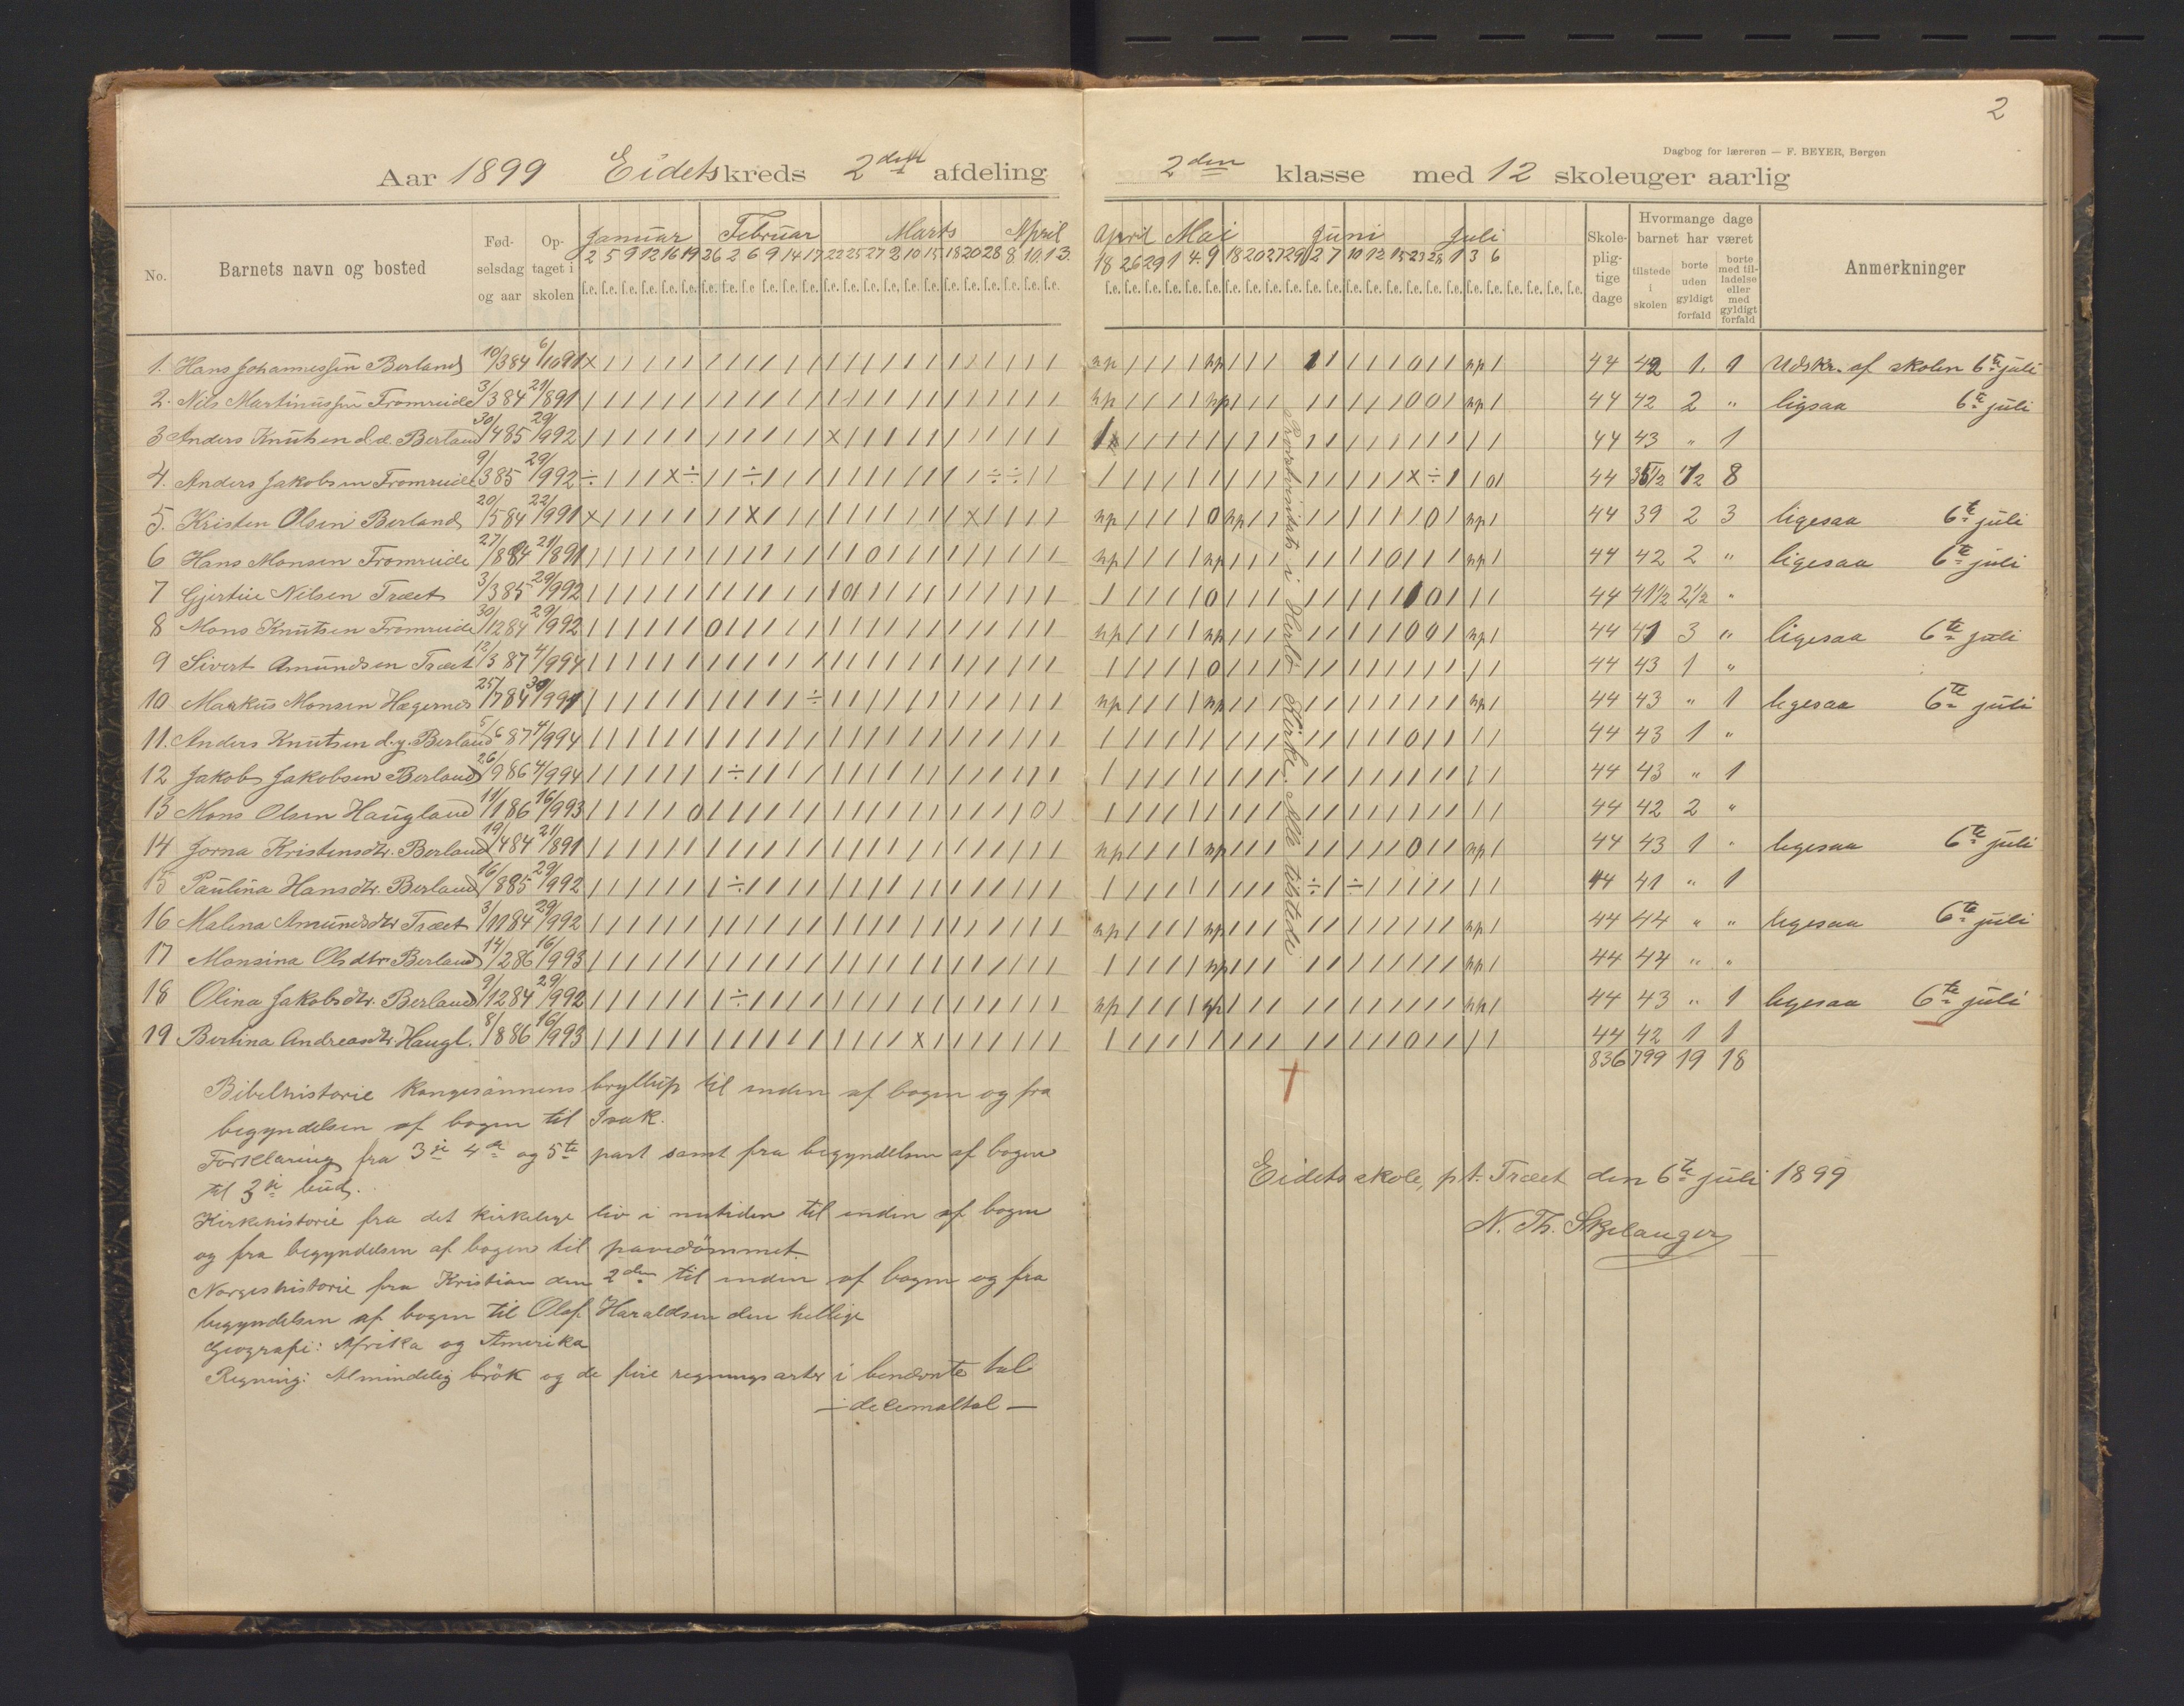 2
Dagbog for læreren — F. BEYER, Bergen
Aar 1899 Eidets kreds 2den afdeling
2den klasse med 12 skoleuger aarlig
No. Barnets navn og bosted Fød- selsdag og aar Op- taget i skolen Januar Februar Marts April
2 5 9 12 16 19 26 2 6 9 14 17 22 25 27 2 10 15 18 20 28 8 10 13
April Mai Juni Juli Skole- plig- tige dage Hvormange dage barnet har været Anmerkninger
18 26 29 1 4 9 18 20 27 29 2 7 10 12 15 23 28 1 3 6
tilstede i skolen borte uden gyldigt forfald borte med til- ladelse eller med gyldigt forfald
1. Hans Johannessen Berland 10/3 84 6/10 91 44 42 1 1 Udskr. af skolen 6te juli
2. Nils Martinussen Fromreide 3/3 84 21/8 91 44 42 2 " ligesaa 6te juli
3 Anders Knutsen d.e. Berland 30/4 85 29/9 92 44 43 " 1
4. Anders Jakobsen Fromreide 9/3 85 29/9 92 44 35 1/2 1/2 8
5. Kristen Olsen Berland 20/5 84 22/9 91 44 39 2 3 ligesaa 6te juli
6 Hans Monsen Fromreide 27/8 84 21/8 91 44 42 2 " ligesaa 6te juli
7 Gjertine Nilsen Træet 3/3 85 29/9 92 44 41 1/2 2 1/2 "
8 Mons Knutsen Fromreide 30/12 84 29/9 92 44 41 3 " ligesaa 6te juli
9 Sivert Amundsen Træet 12/3 87 4/9 94 44 43 1 "
10 Markus Monsen Hægernes 25/7 84 30/9 91 44 43 " 1 ligesaa 6te juli
11. Anders Knutsen d.y. Berland 5/6 87 4/9 94 44 43 1 "
12 Jakob Jakobsen Berland 26/9 86 4/9 94 44 43 " 1
13 Mons Olsen Haugland 11/1 86 16/9 93 44 42 2 "
14 Jorna Kristensdtr. Berland 19/4 84 21/8 91 44 43 1 " ligesaa 6te juli
15 Paulina Hansdtr. Berland 16/8 85 29/9 92 44 41 " 1
16 Malena Amundsdtr Træet 3/11 84 29/9 92 44 44 " " ligesaa 6te juli
17 Monsina Olsdtr Berland 14/2 86 16/9 93 44 44 " "
18 Olina Jakobsdtr. Berland 9/12 84 29/9 92 44 43 " 1 ligesaa 6te juli
19 Bertina Andreasdtr. Haugl. 8/8 86 16/9 93 44 42 1 1
836 799 19 18
Provstvisitats i Herlö kirke. Alle tilstede.
Bibelhistorie Kongesönnens bryllup til enden af bogen og fra
begyndelsen af bogen til Isak.
Forklaring fra 3die 4de og 5te part samt fra begyndelsen af bogen
til 3die bud.
Kirkehistorie fra det kirkelige liv i nutiden til enden af bogen
og fra begyndelsen af bogen til pavedömmet.
Norgeshistorie fra Kristian den 2den til enden af bogen og fra
begyndelsen af bogen til Olaf Haraldsen den hellige
Geografi: Afrika og Amerika
Regning: Almindelig brök og de fire regningsarter i benævnte tal
— decimaltal —
Eidets skole, p.t. Træet den 6te juli 1899
N. Th. Skjelanger